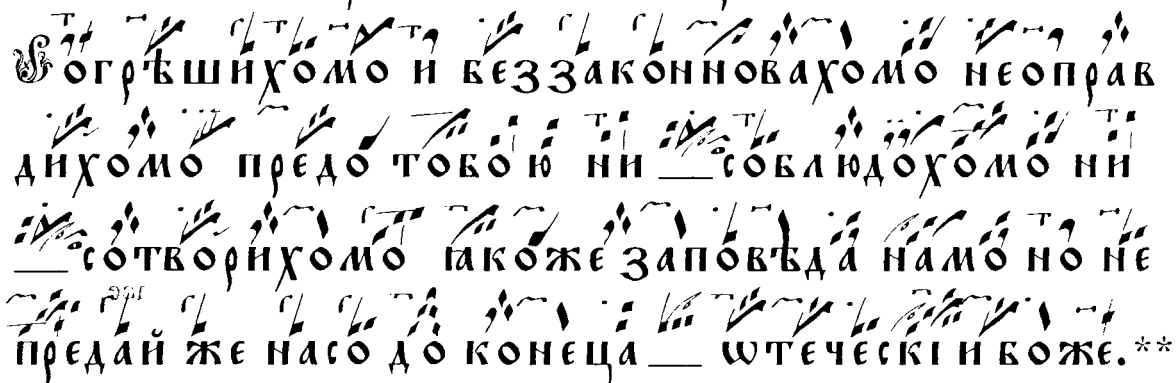 Согрѣшихомо и беззаконновахомо неоправ
дихомо предо тобою ни __ соблюдохомо ни
__ сотворихомо ꙗкоже заповѣда намо но не
предай же насо до конеца __ ѡтеческі и боже.**